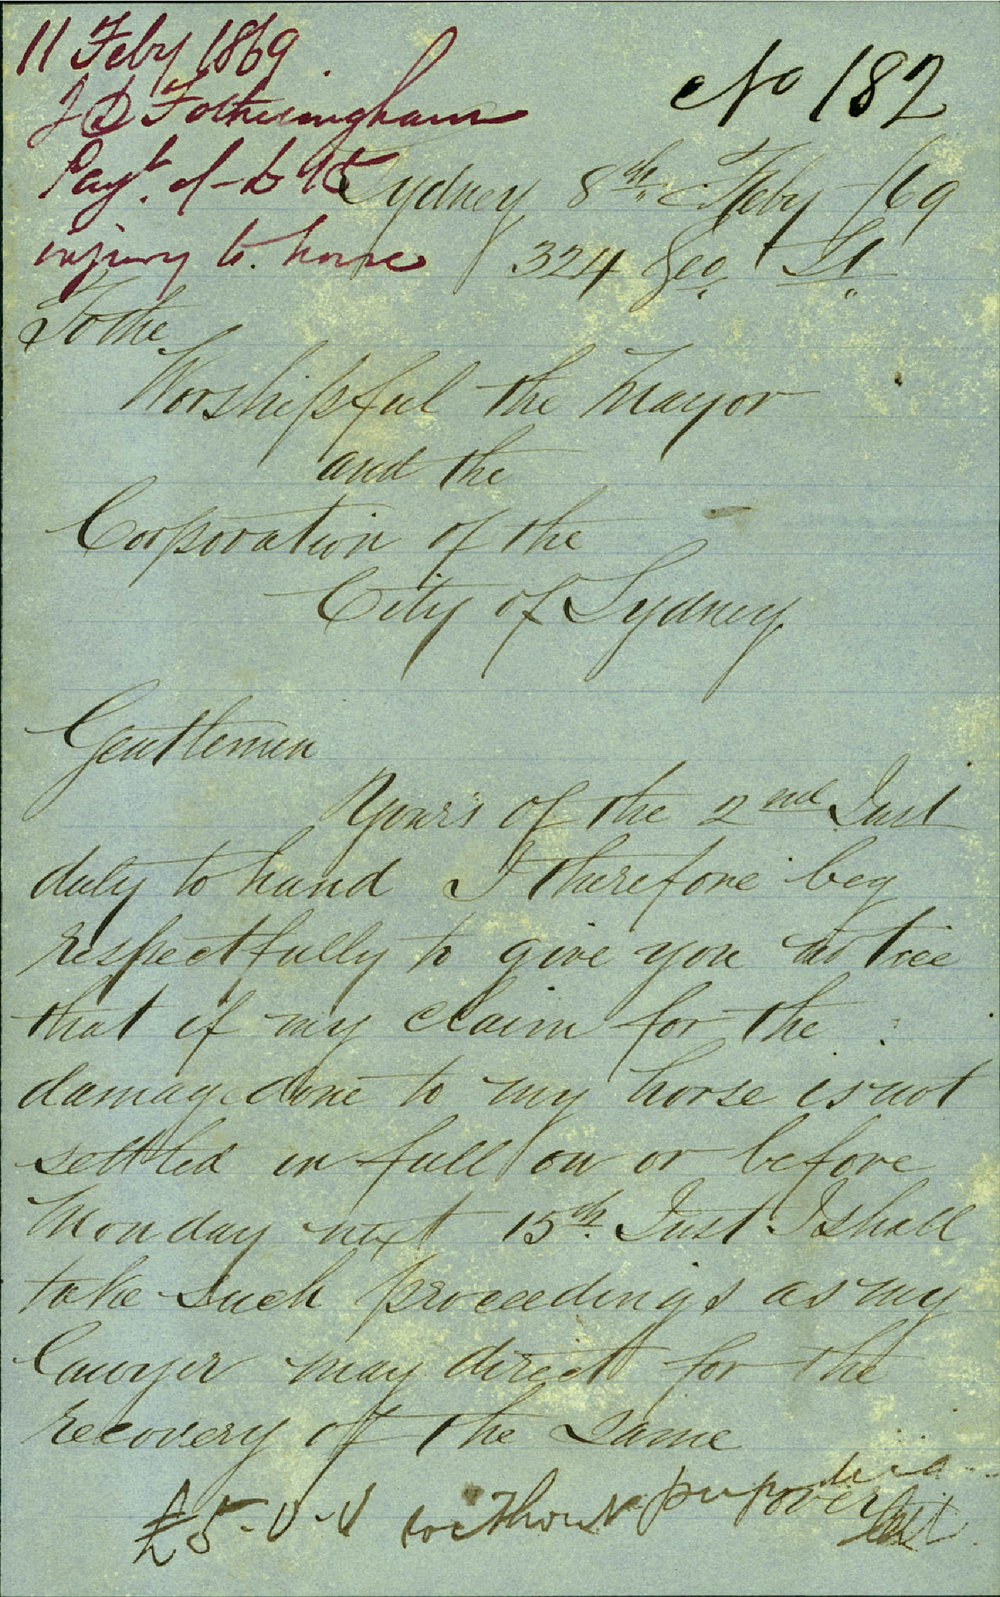 11 Feby 1869
J D Fotheringham
No 182
Payt. of £15
injury to horse
Sydney 8th Feby /69
324 Geo. St.
To the
Worshipful the Mayor
and the
Corporation of the
City of Sydney
Gentlemen
Your's of the 2nd Inst
duly to hand I therefore beg
respectfully to give you notice
that if my claim for the
damage done to my horse is not
settled in full on or before
Monday next 15th. Inst I shall
take such proceedings as my
lawyer may direct for the
recovery of the same
£5-0-0 without
over